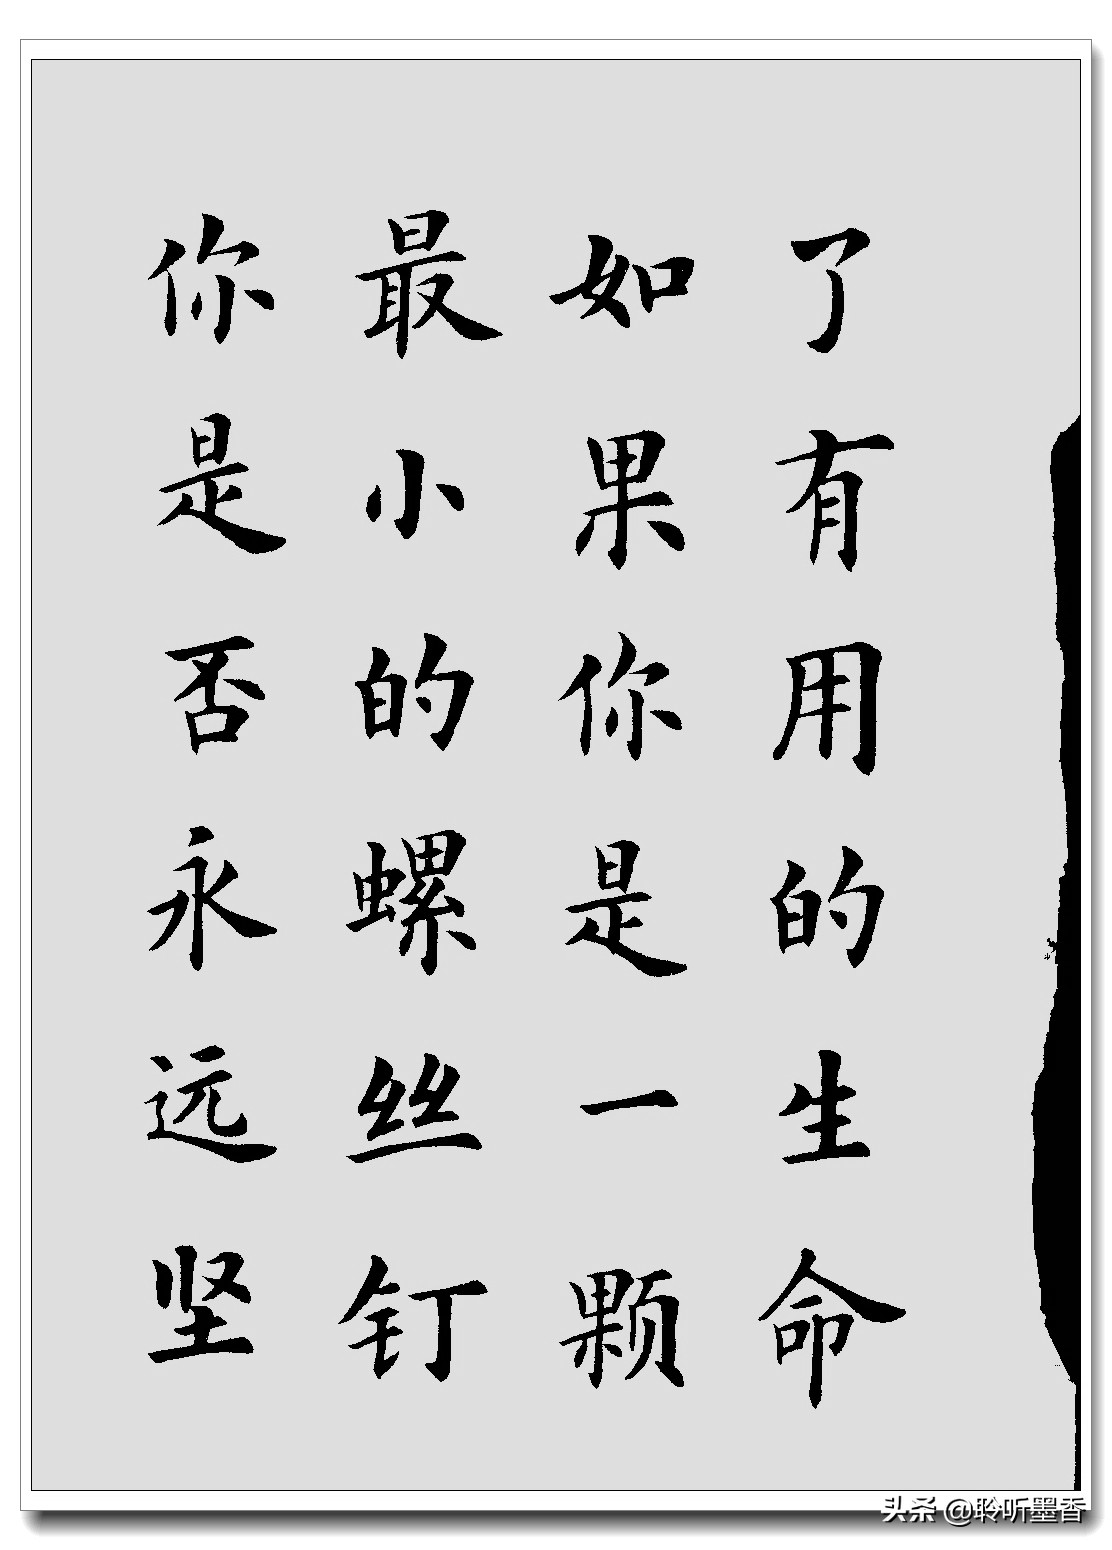 了有用的生命
如果你是一颗
最小的螺丝钉
你是否永远坚
头条 @聆听墨香